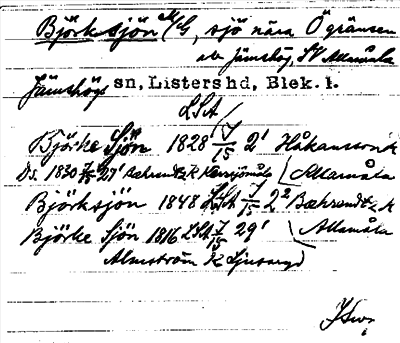 Björksjön, sjö nära Ö gränsen
Jämshög, SV Allmåla
Jämshögs sn, Listers hd, Blek. l.
LSA
Björke Sjön 1828 7/15 2¹ Håkansson k
Ds. 1830 27¹ Bæhrendtz k Allamåla
Björksjön 1848 LSA 7/15 2² Bæhrendtz k
Björke Sjön 1816 LSA 7/15 29¹ Allamåla
Almström k Ljusaryd